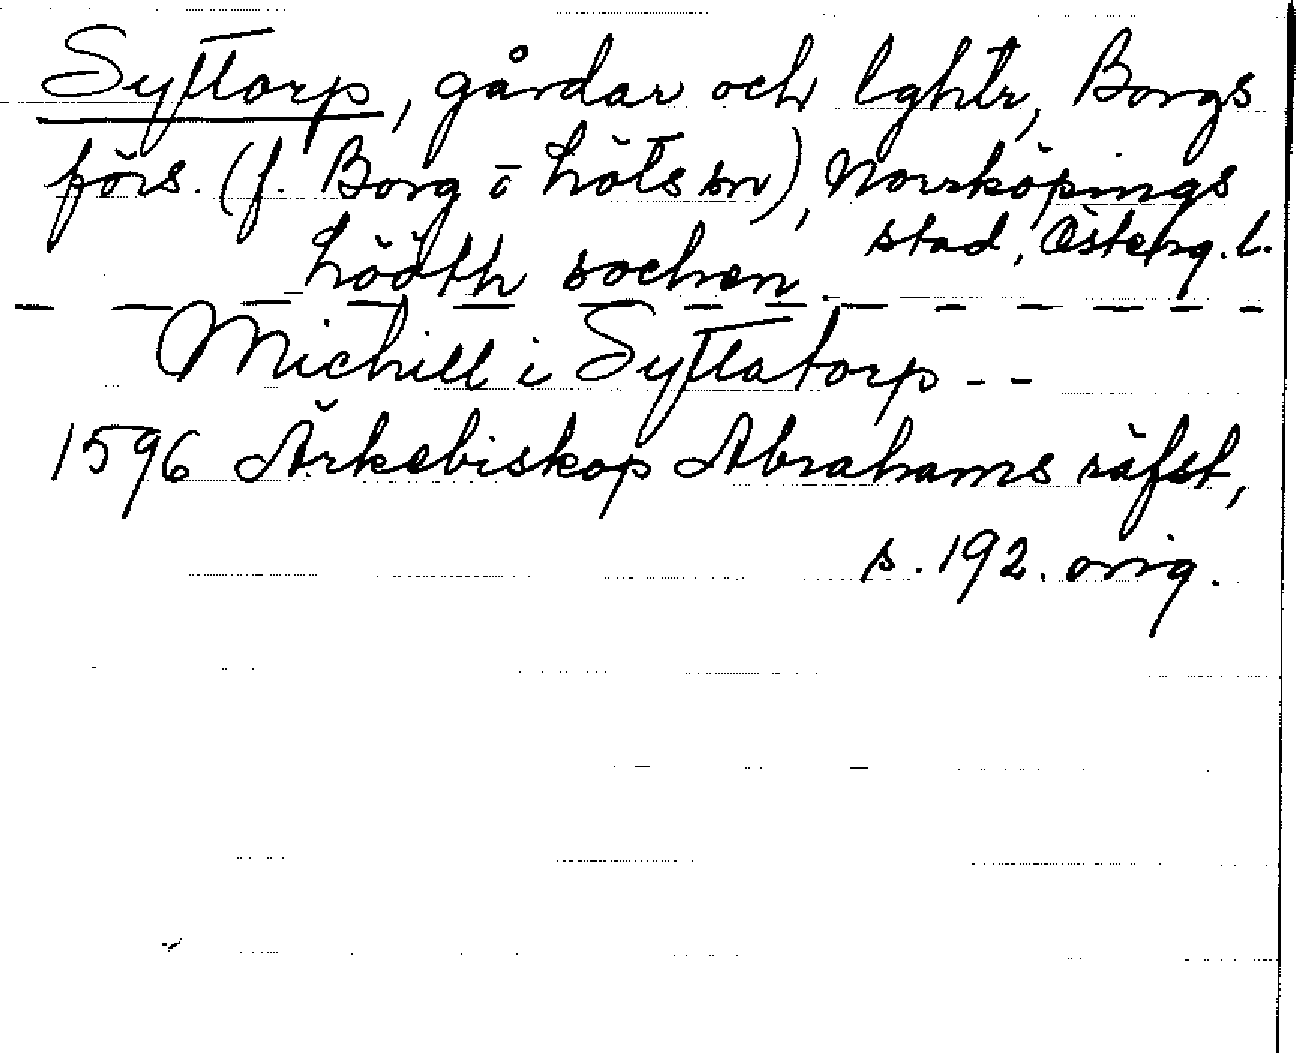 Syltorp, gårdar och lghtr, Borgs
förs. (f. Borg o Löts sn), Norrköpings
stad, Österg. l.
Lööth sochen.
Michill i Syltatorp - -
1596 Ärkebiskop Abrahams räfst,
s. 192. orig.